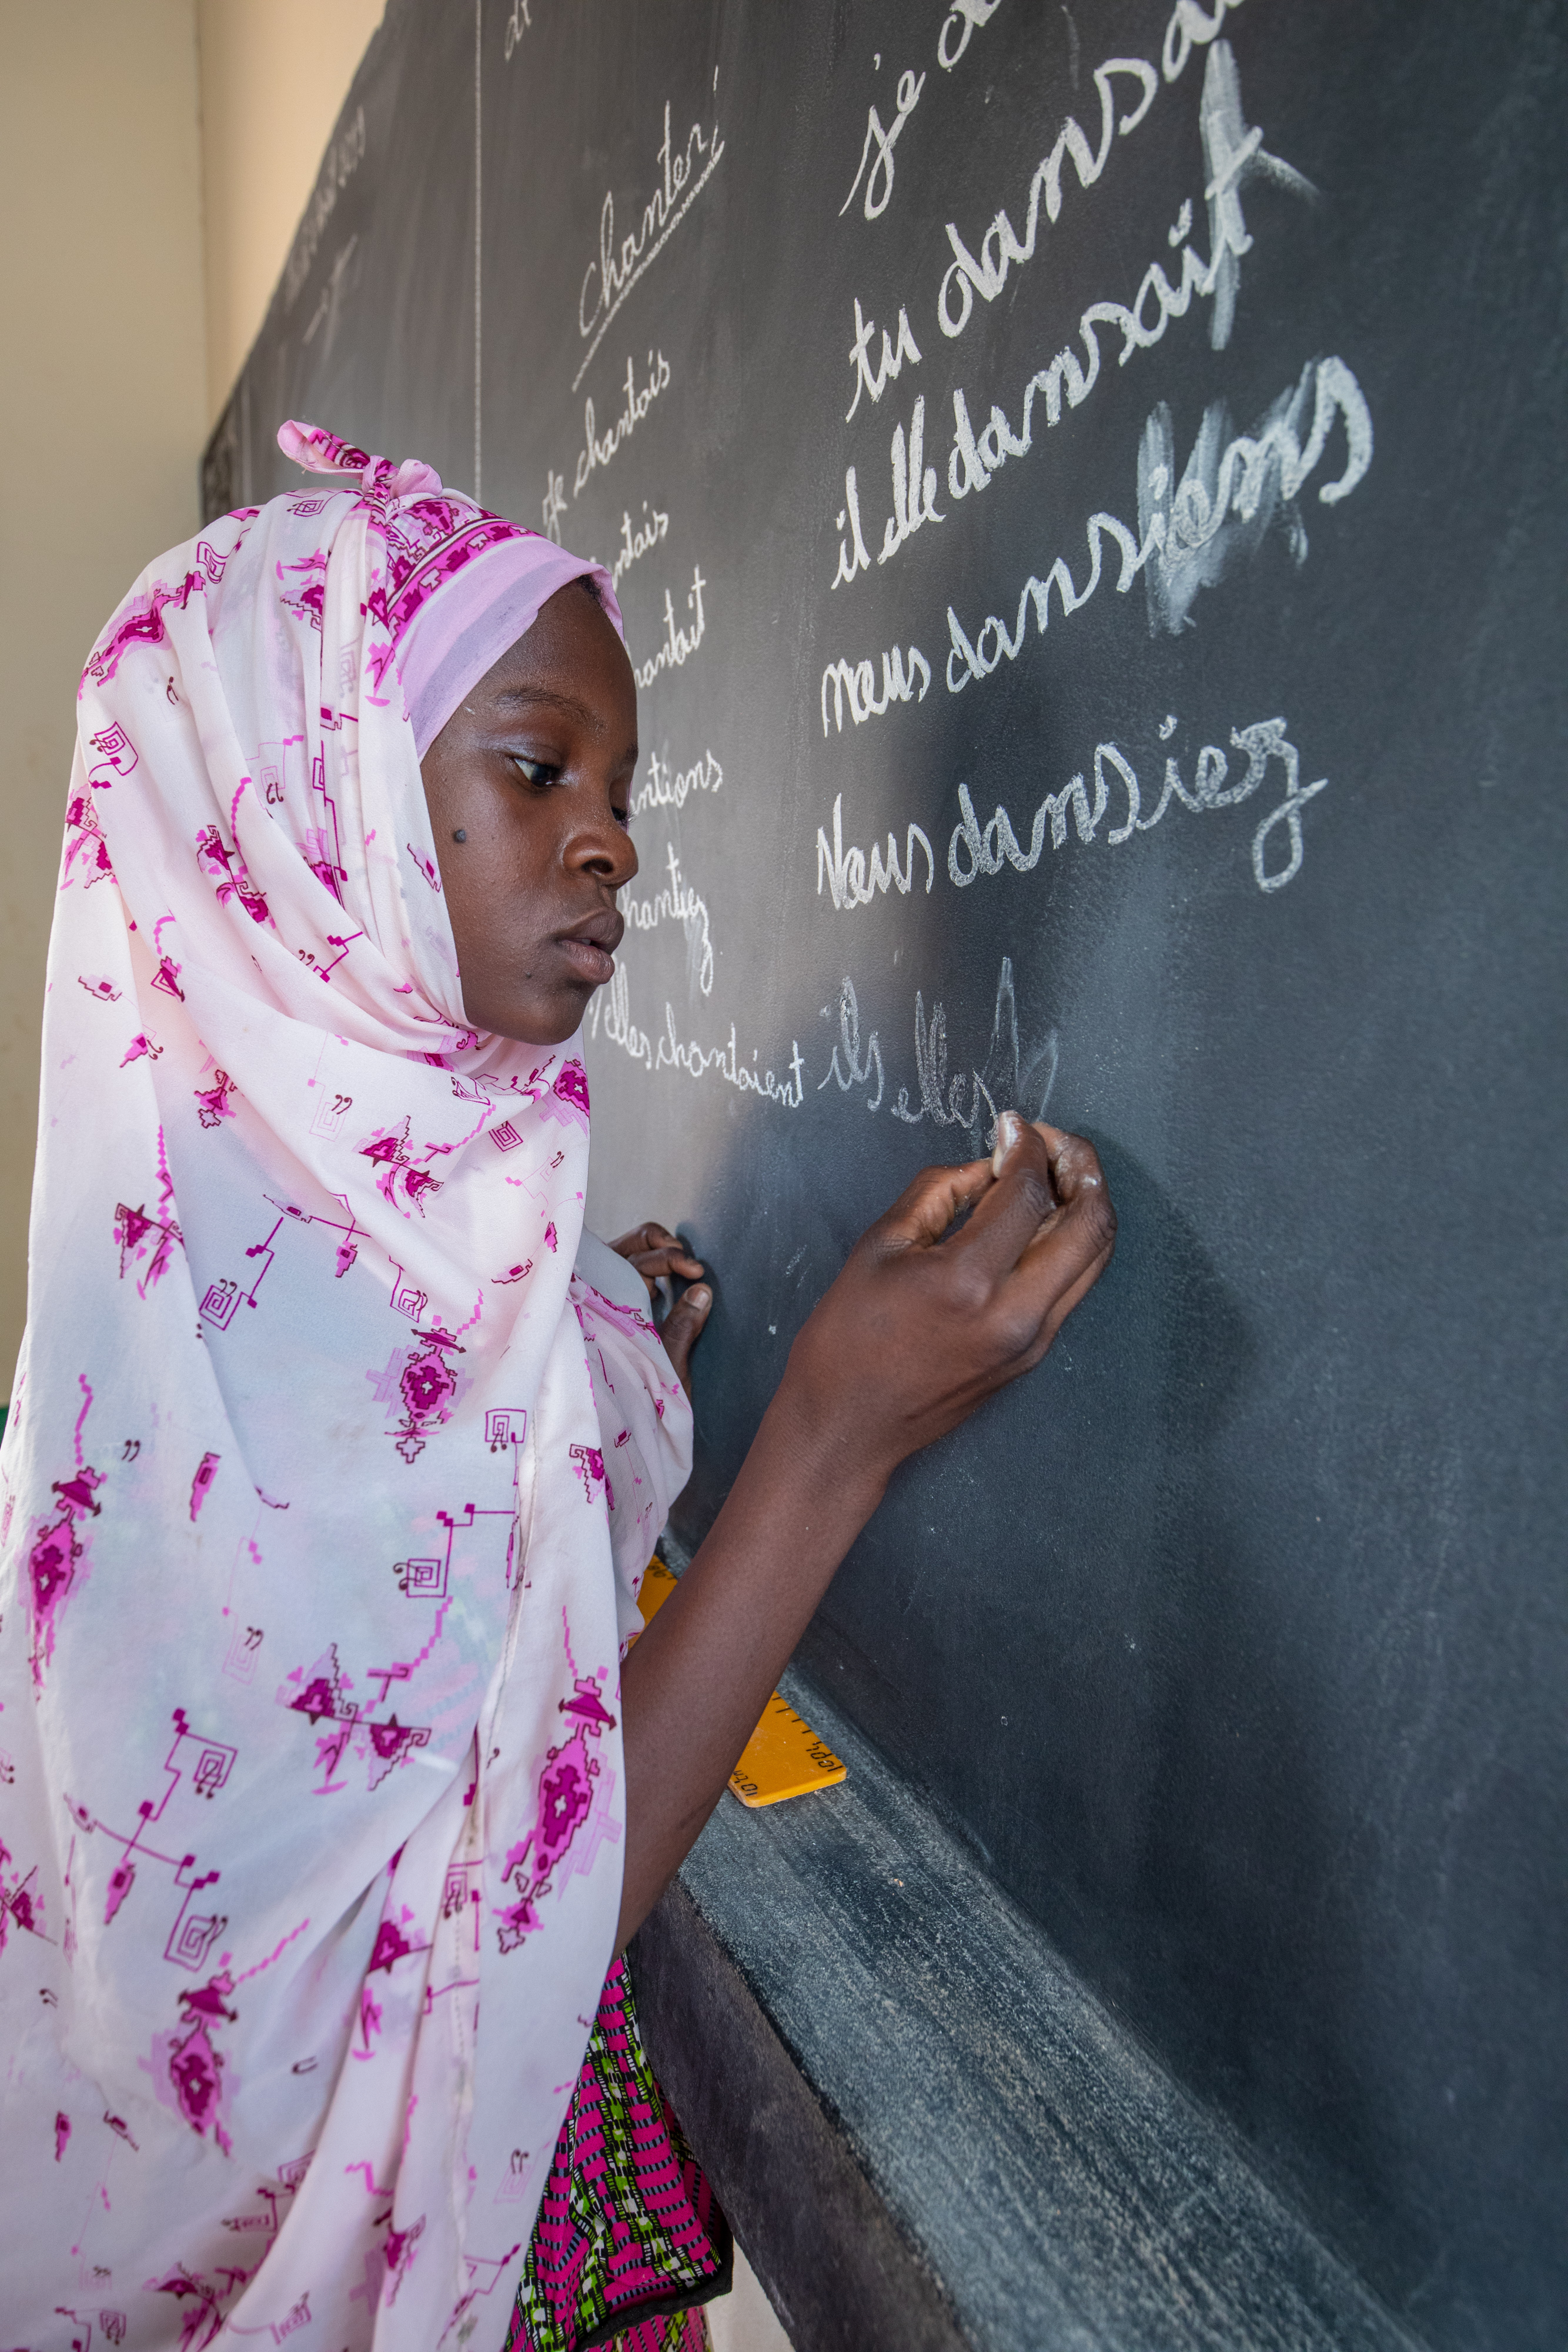 Chanter
Je chantais
ntais
hantait
antions
hantiez
/elles chantaient
je d
tu dansa
il elle dansait
nous dansiens
Vous dansiez
ils elles